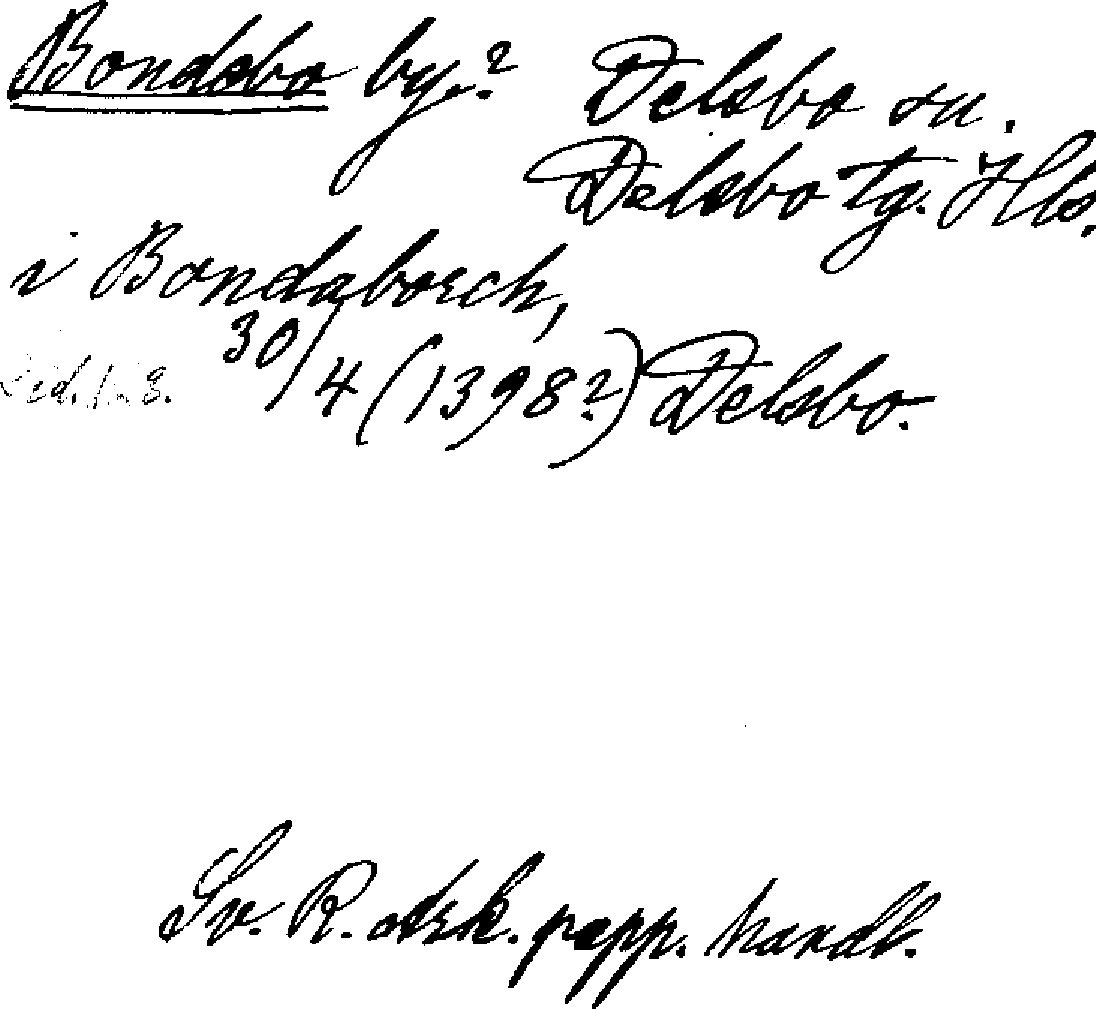 Bondebo by.? Delsbo sn.
Delsbo tg. Hls.
i Bondaborch,
30/4 (1398?) Delsbo.
Sv. R. ark. papp. handl.